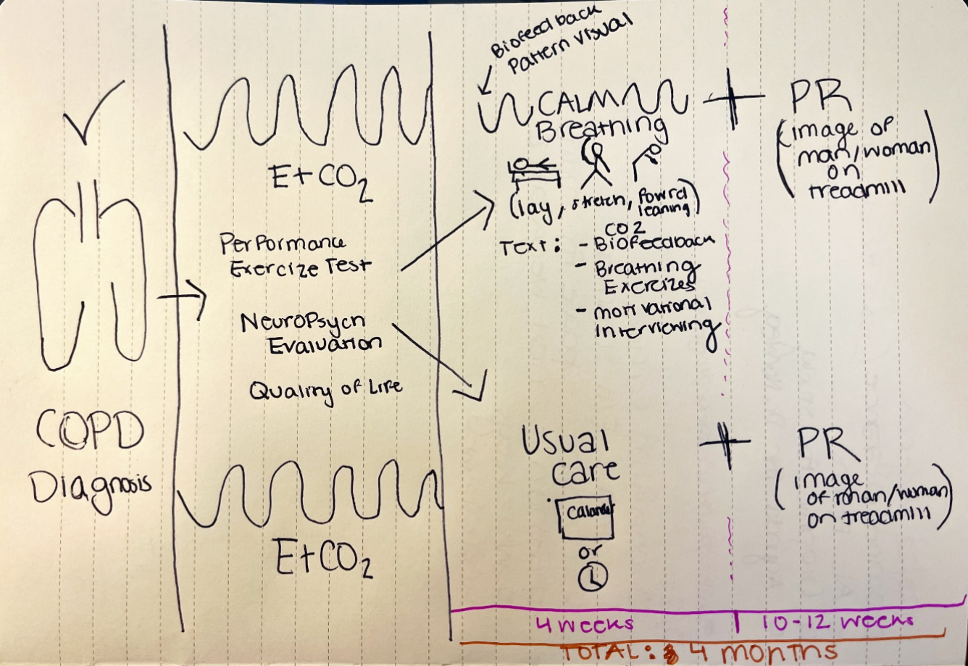 COPD
Diagnosis
E+CO2
Performance
Exercize Test
Neuropsych
Evaluation
Quality of Life
E+CO2
Biofeedback
Pattern Visual
CALM
Breathing
(lay, stretch, forwrd
leaning)
Text: - CO2
Biofeedback
- Breathing
Exercizes
- motivational
interviewing
+ PR
(image of
man/woman
on
treadmill)
Usual
care
Calander
or
+ PR
(image
of man/woman)
on treadmill)
4 weeks | 10-12 weeks
TOTAL: 4 months